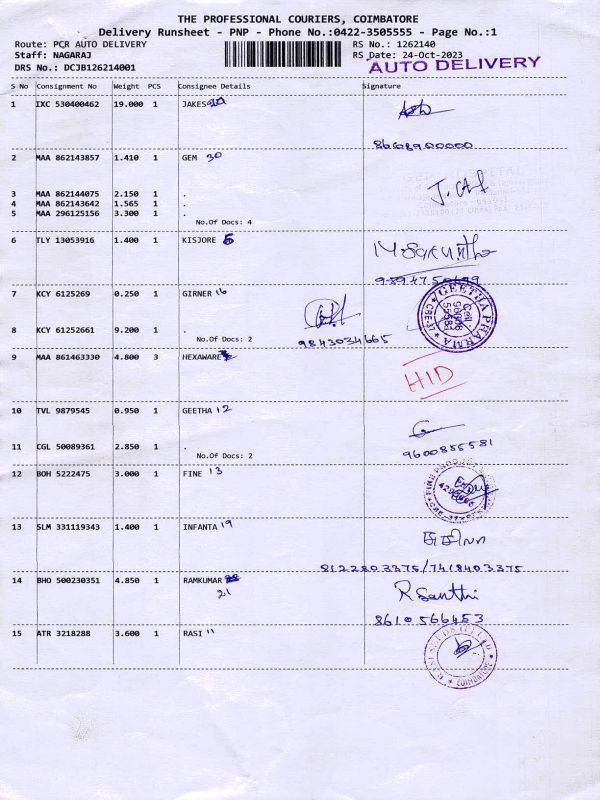 THE PROFESSIONAL COURIERS, COIMBATORE
Delivery Runsheet - PNP - Phone No.:0422-3505555 - Page No.:1
Route: PCR AUTO DELIVERY RS No.: 1262140
Staff: NAGARAJ RS Date: 24-Oct-2023
DRS No.: DCJB126214001 AUTO DELIVERY
S No Consignment No Weight PCS Consignee Details Signature
1 IXC 530400462 19.000 1 JAKES
8668900000
2 MAA 862143857 1.410 1 GEM 30
3 MAA 862144075 2.150 1 .
4 MAA 862143642 1.565 1 .
5 MAA 296125156 3.300 1 .
No.Of Docs: 4
6 TLY 13053916 1.400 1 KISJORE 5
7 KCY 6125269 0.250 1 GIRNER 16
GEETHA PHARMA
CBE-
8 KCY 61252661 9.200 1 .
No.Of Docs: 2 9843034665
9 MAA 861463330 4.800 3 HEXAWARE
HID
10 TVL 9879545 0.950 1 GEETHA 12
11 CGL 50089361 2.850 1 .
No.Of Docs: 2 9600855581
12 BOH 5222475 3.000 1 FINE 13
13 SLM 331119343 1.400 1 INFANTA 19
8122803375/7418403375
14 BHO 500230351 4.850 1 RAMKUMAR
21 R Santhi
8610566453
15 ATR 3218288 3.600 1 RASI 11
COIMBATORE